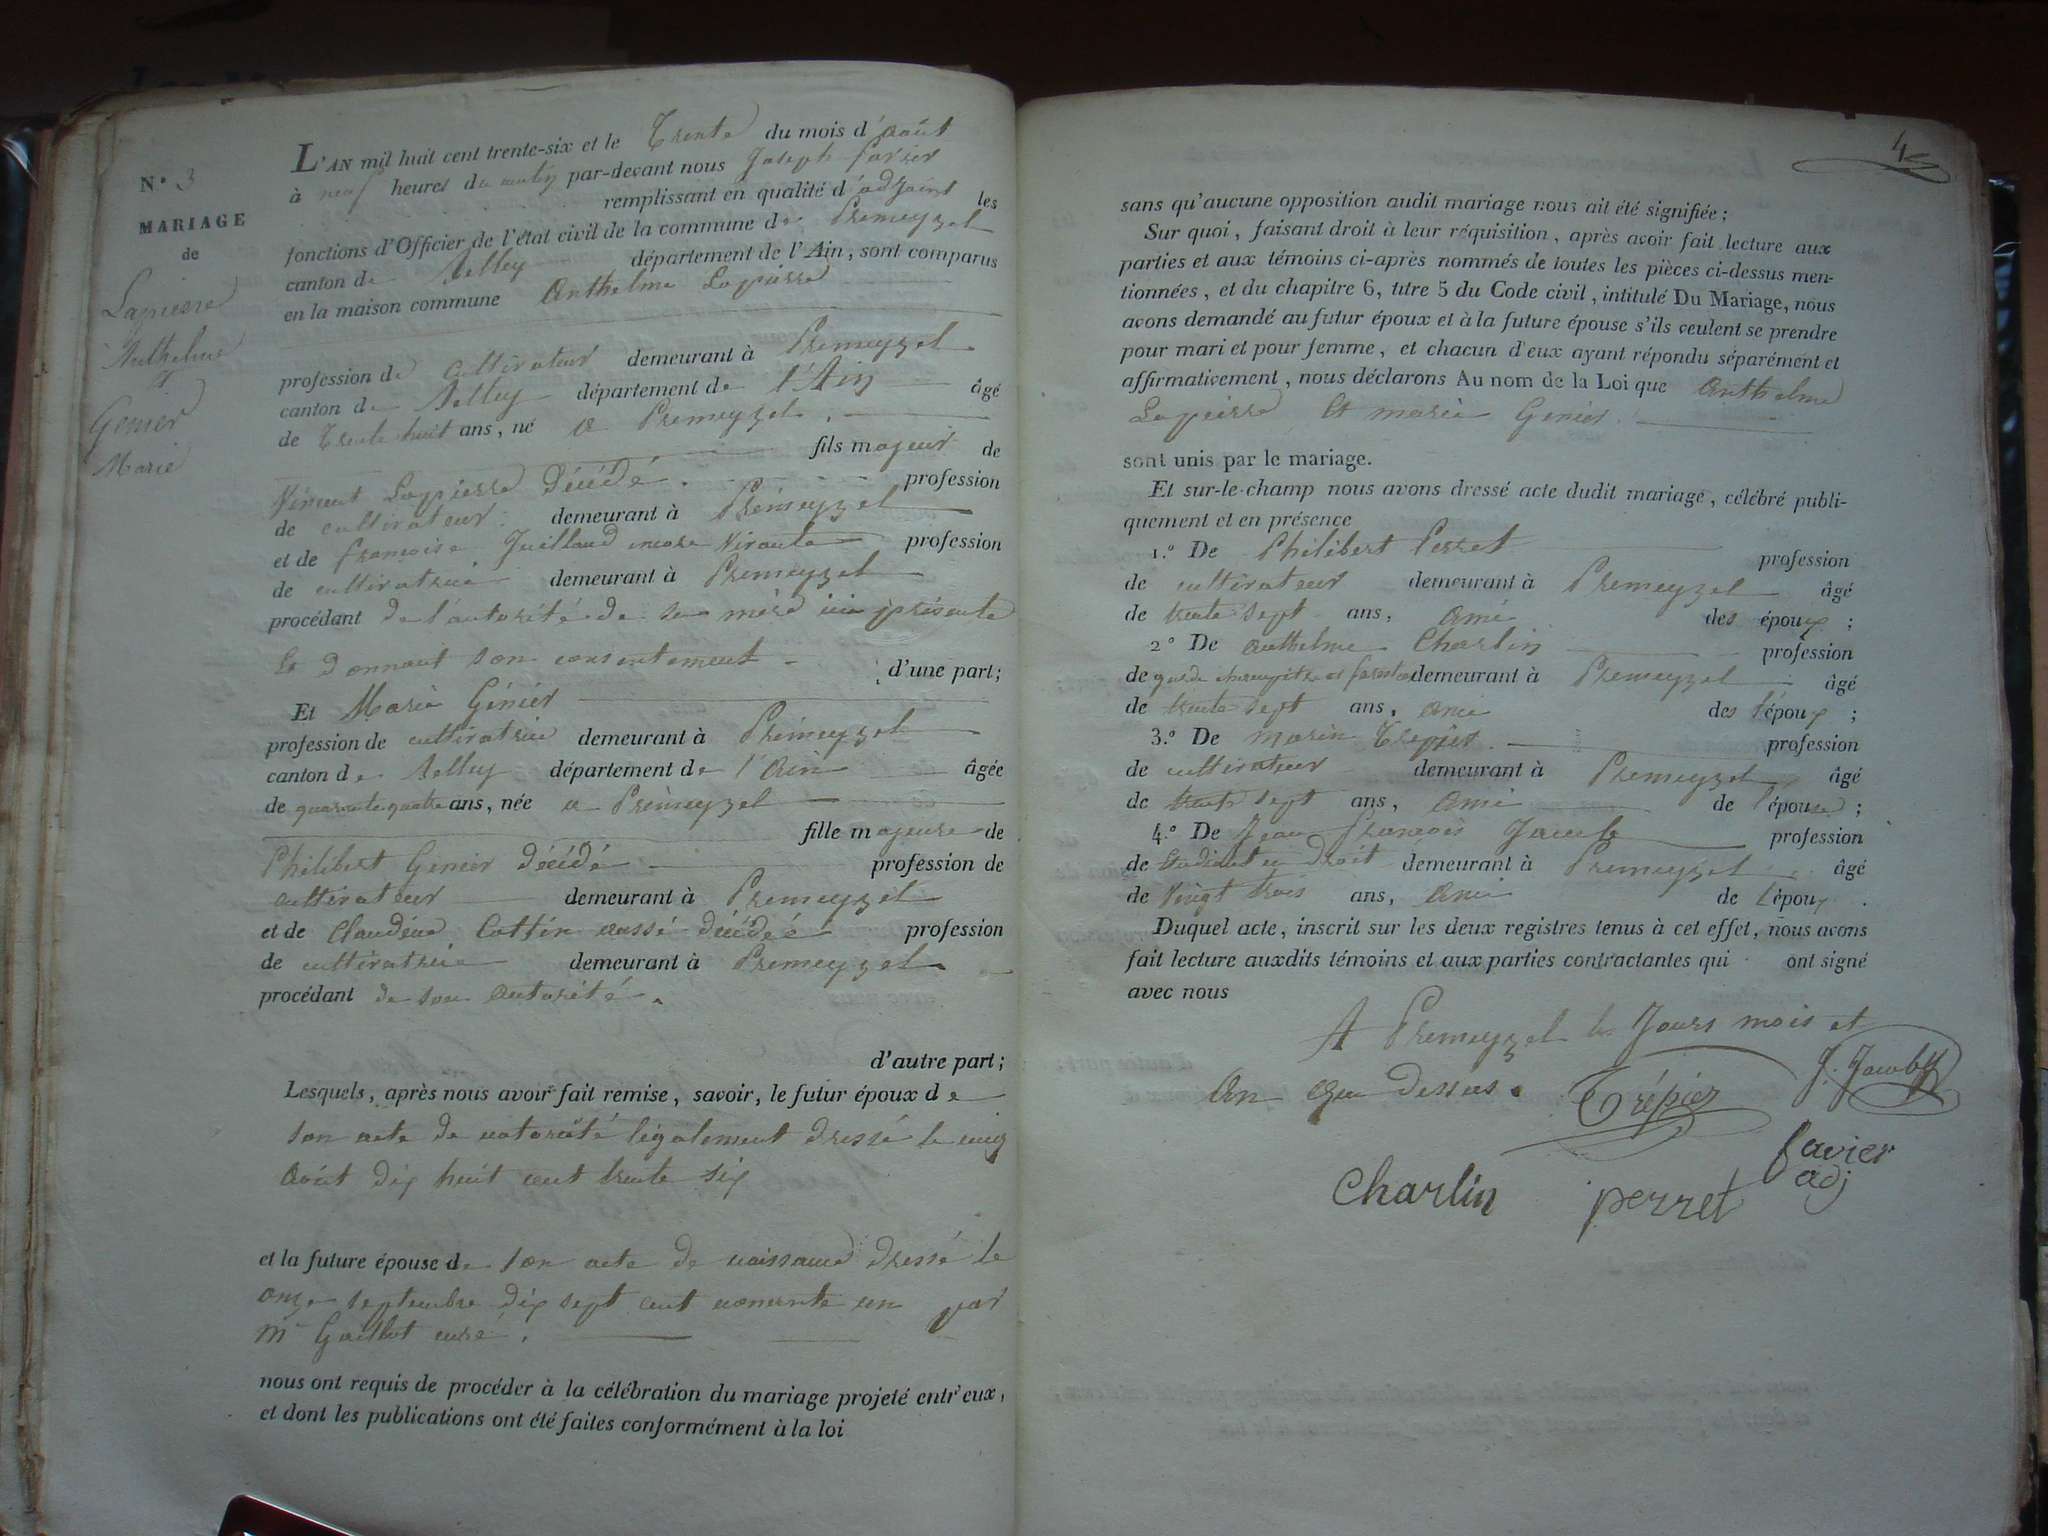 N.º 3
MARIAGE
de
Lapierre
Anthelme
et
Genier
Marie
L'AN mil huit cent trente-six et le Trente du mois d'août
à neuf heures du matin par-devant nous Joseph Favier
remplissant en qualité d'adjoint les
fonctions d'Officier de l'état civil de la commune de Premeyzel
canton de Belley département de l'Ain, sont comparus
en la maison commune Anthelme Lapierre
profession de cultivateur demeurant à Premeyzel
canton de Belley département de l'Ain âgé
de Trente huit ans, né a Premeyzel.
fils majeur de
Vincent Lapierre Décédé. profession
de cultivateur demeurant à Prémeyzel
et de françoise Juilland encore Vivante profession
de cultivatrice demeurant à Premeyzel
procédant de l'autorité de sa mère ici présente
Et donnant son consentement d'une part;
Et Marie Génier
profession de cultivatrice demeurant à Prémeyzel
canton de Belley département de l'Ain âgée
de quarante quatre ans, née a Prémeyzel
fille majeure de
Philibert Genier Décédé profession de
cultivateur demeurant à Premeyzel
et de Claudine Cottin aussi décédée profession
de cultivatrice demeurant à Premeyzel
procédant de son autorité.
d'autre part;
Lesquels, après nous avoir fait remise, savoir, le futur époux de
son acte de notorieté légalement dressé le cinq
Août dix huit cent trente six
et la future épouse de son acte de naissance dressé le
onze septembre dix sept cent nonante un par
Mr curé.
nous ont requis de procéder à la célébration du mariage projeté entr'eux,
et dont les publications ont été faites conformément à la loi
4
sans qu'aucune opposition audit mariage nous ait été signifiée;
Sur quoi, faisant droit à leur réquisition, après avoir fait lecture aux
parties et aux témoins ci-après nommés de toutes les pièces ci-dessus men-
tionnées, et du chapitre 6, titre 5 du Code civil, intitulé Du Mariage, nous
avons demandé au futur époux et à la future épouse s'ils veulent se prendre
pour mari et pour femme, et chacun d'eux ayant répondu séparément et
affirmativement, nous déclarons Au nom de la Loi que Anthelme
Lapierre Et marie Genier.
sont unis par le mariage.
Et sur-le-champ nous avons dressé acte dudit mariage, célébré publi-
quement et en présence
1.º De Philibert Perret profession
de cultivateur demeurant à Premeyzel âgé
de trente sept ans, ami des époux;
2º De anthelme Charlin profession
de garde champêtre et forestier demeurant à Premeyzel âgé
de trente sept ans, ami des l'époux;
3.º De marin Trepier. profession
de cultivateur demeurant à Premeyzel âgé
de trente sept ans, ami de l'épouse;
4.º De Jean françois Jacob profession
de Etudiant en Droit demeurant à Premeyzel âgé
de Vingt trois ans, ami de l'époux.
Duquel acte, inscrit sur les deux registres tenus à cet effet, nous avons
fait lecture auxdits témoins et aux parties contractantes qui ont signé
avec nous
A Premeyzel les Jours mois et
An que Dessus.
Trépier
J. Jacob
Favier
adj
Charlin
perret